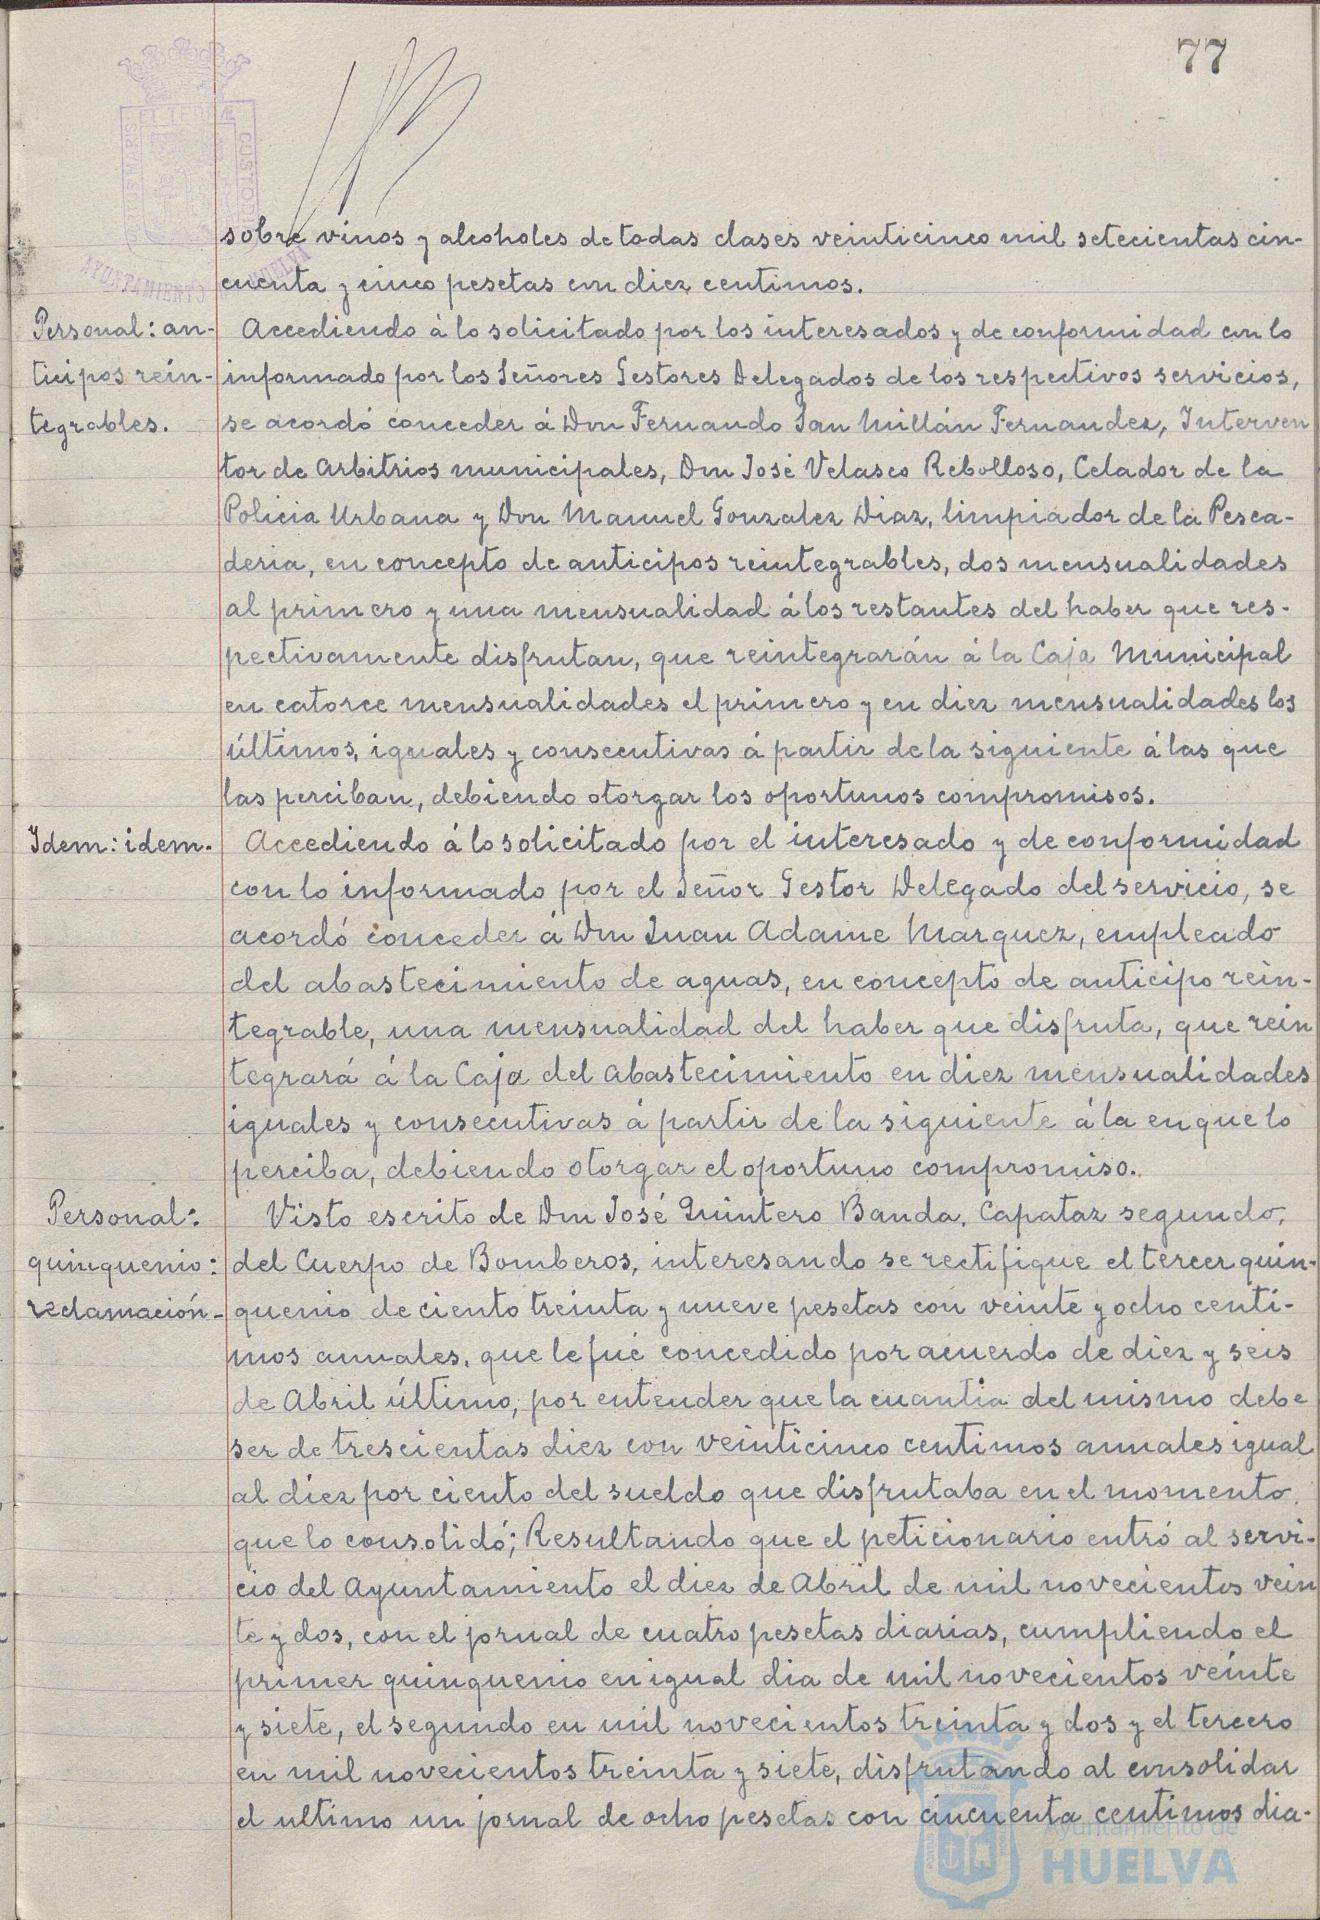 77
PORTUS MARIS ET TERRÆ CUSTODIA
AYUNTAMIENTO DE HUELVA
sobre vinos y alcoholes de todas clases veinticinco mil setecientas cin-
cuenta y cinco pesetas con diez centimos.
Personal: an-
ticipos rein-
tegrables.
Accediendo á lo solicitado por los interesados y de conformidad con lo
informado por los Señores Gestores Delegados de los respectivos servicios,
se acordó conceder á Don Fernando San Millán Fernandez, Interven
tor de Arbitrios municipales, Don José Velasco Rebolloso, Celador de la
Policia Urbana y Don Manuel Gonzalez Diaz, limpiador de la Pesca-
deria, en concepto de anticipos reintegrables, dos mensualidades
al primero y una mensualidad á los restantes del haber que res-
pectivamente disfrutan, que reintegrarán á la Caja Municipal
en catorce mensualidades el primero y en diez mensualidades los
últimos, iguales y consecutivas á partir de la siguiente á las que
las perciban, debiendo otorgar los oportunos compromisos.
Idem: idem.
Accediendo á lo solicitado por el interesado y de conformidad
con lo informado por el Señor Gestor Delegado del servicio, se
acordó conceder á Don Juan Adame Marquez, empleado
del abastecimiento de aguas, en concepto de anticipo rein-
tegrable, una mensualidad del haber que disfruta, que rein
tegrará á la Caja del Abastecimiento en diez mensualidades
iguales y consecutivas á partir de la siguiente á la en que lo
perciba, debiendo otorgar el oportuno compromiso.
Personal:
quinquenio:
reclamación-
Visto escrito de Don José Quintero Banda, Capataz segundo,
del Cuerpo de Bomberos, interesando se rectifique el tercer quin-
quenio de ciento treinta y nueve pesetas con veinte y ocho centi-
mos anuales, que le fué concedido por acuerdo de diez y seis
de Abril último, por entender que la cuantia del mismo debe
ser de trescientas diez con veinticinco centimos anuales igual
al diez por ciento del sueldo que disfrutaba en el momento
que lo consolidó; Resultando que el peticionario entró al servi-
cio del Ayuntamiento el diez de Abril de mil novecientos vein
te y dos, con el jornal de cuatro pesetas diarias, cumpliendo el
primer quinquenio en igual dia de mil novecientos veinte
y siete, el segundo en mil novecientos treinta y dos y el tercero
en mil novecientos treinta y siete, disfrutando al consolidar
el ultimo un jornal de ocho pesetas con cincuenta centimos dia-
Ayuntamiento de
HUELVA